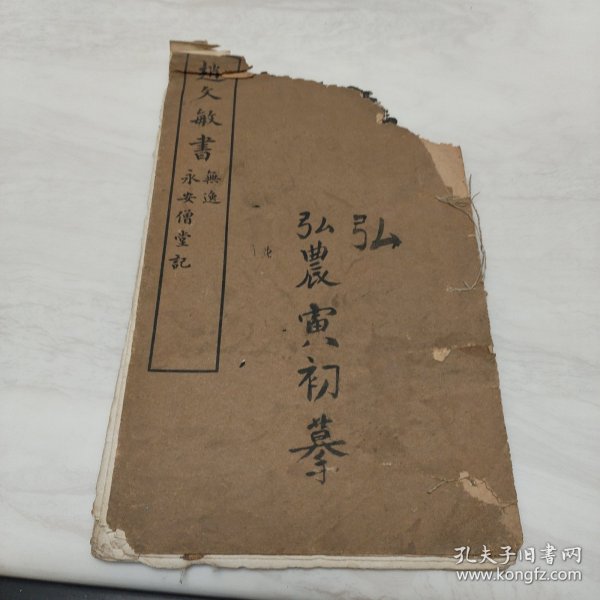 趙文敏書
無逸
永安僧堂記
弘
弘農寅初摹
孔夫子旧書网
www.kongfz.com